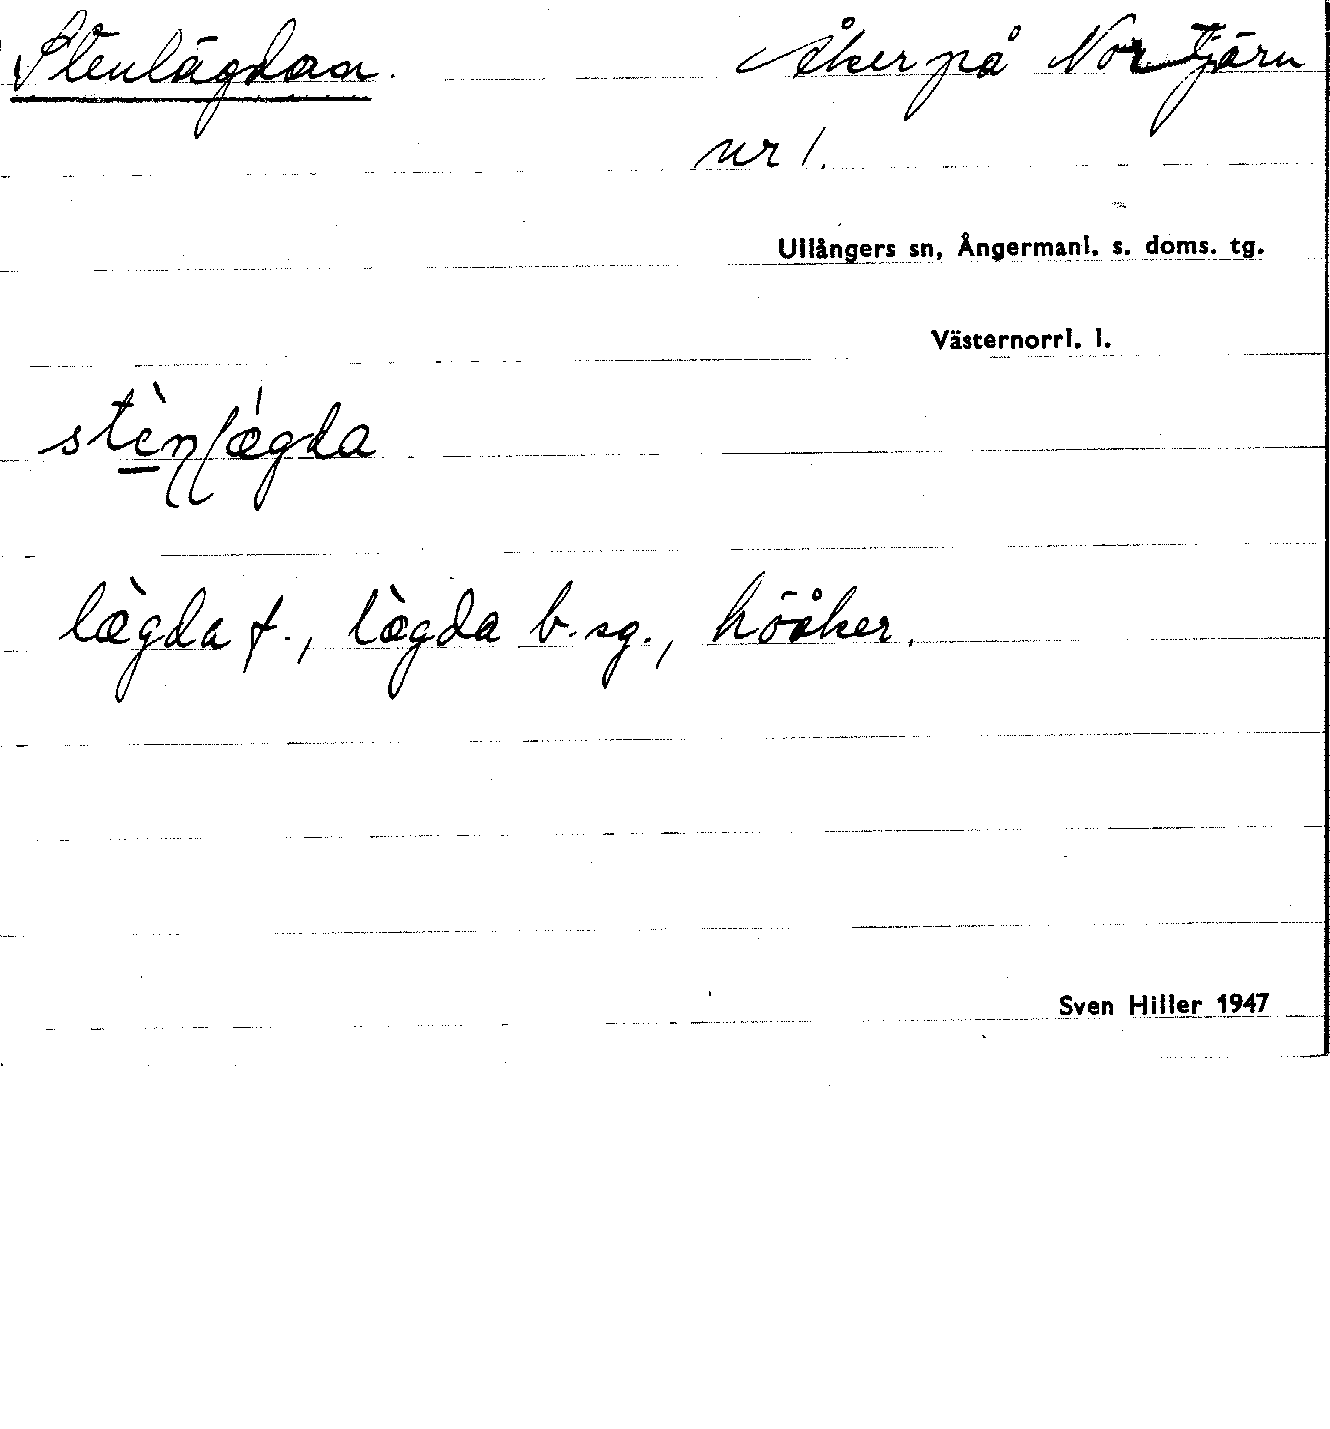 Stenlägdan. Åker på Nortjärn
nr 1.
Ullångers sn, Ångermanl. s. doms. tg.
Västernorrl. l.
stè̠nlǽgda
læ̀gda f., læ̀gda b. sg., höåker.
Sven Hiller 1947